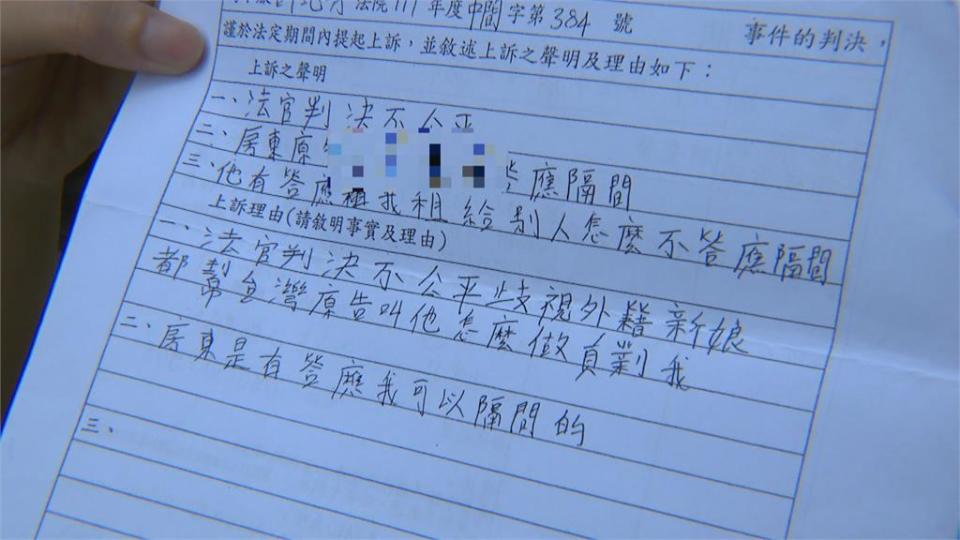 法院111年度中簡字第384號 事件的判決，
謹於法定期間內提起上訴，並敘述上訴之聲明及理由如下：
上訴之聲明
一、法官判決不公平
二、房東原 應隔間
三、他有答應 我租給別人怎麼不答應隔間
上訴理由(請敘明事實及理由)
一、法官判決不公平歧視外籍新娘
都幫台灣原告叫他怎麼做 我
二、房東是有答應我可以隔間的
三、